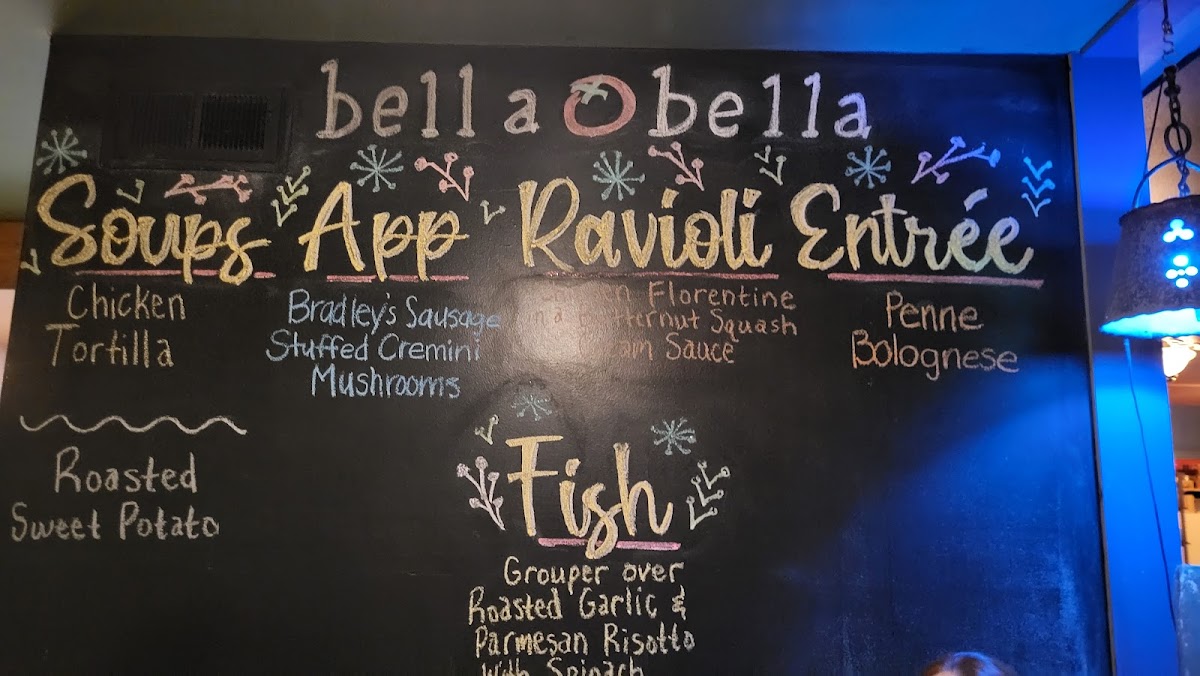 bella bella
Soups
Chicken
Tortilla
Roasted
Sweet Potato
App
Bradley's Sausage
Stuffed Cremini
Mushrooms
Ravioli
Florentine
Squash
Sauce
Entrée
Penne
Bolognese
Fish
Grouper over
Roasted Garlic &
Parmesan Risotto
with Spinach